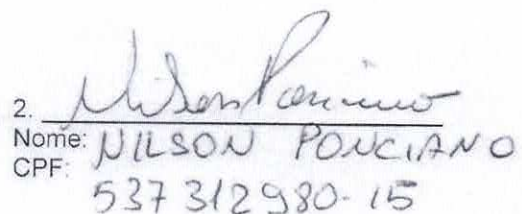 2. Nilson Ponciano
Nome: NILSON PONCIANO
CPF: 537312980-15